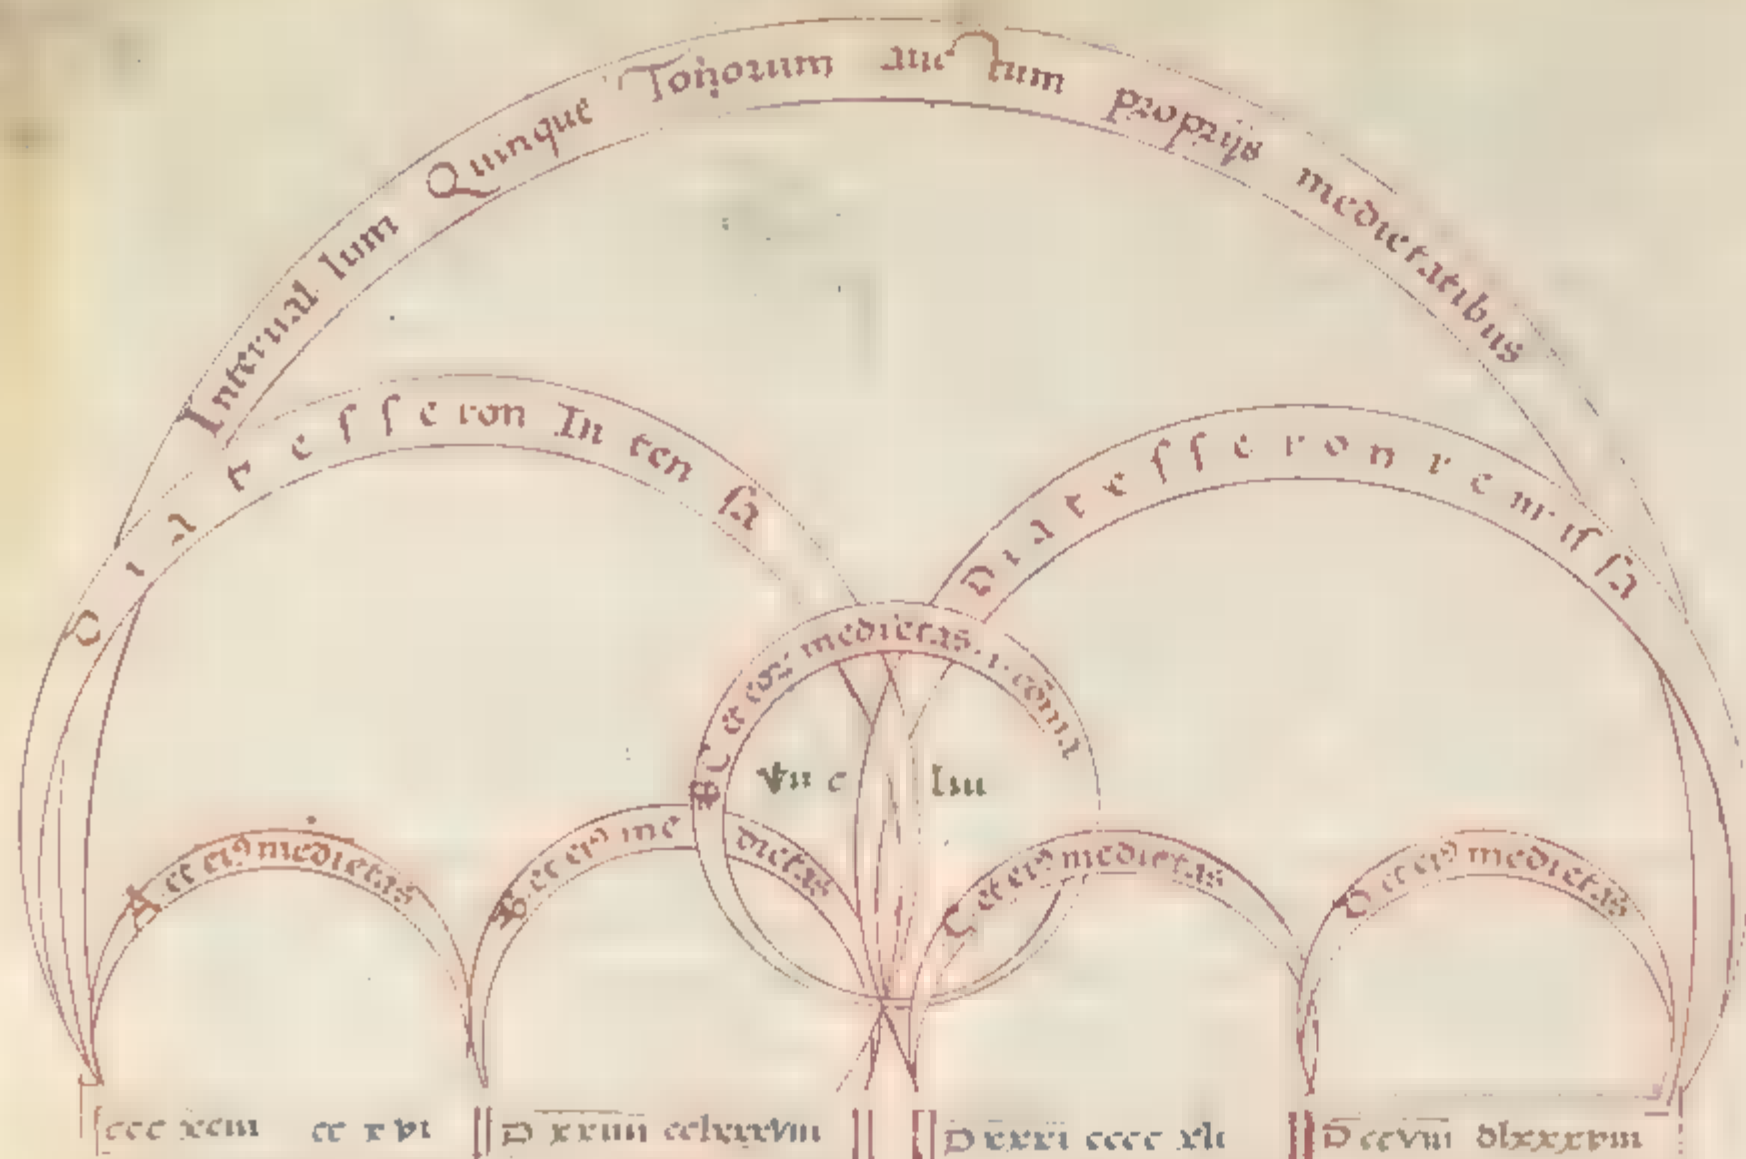 Interuallum Quinque Tonorum cum proprijs medietatibus
Diatesseron Intensa
Diatesseron remissa
BC et eor medietas .i. coma
vii c liii
A et ei9 medietas
B et ei9 medietas
C et ei9 medietas
D et ei9 medietas
ccc xciii cc xvi
D xxiiii cclxxxviii
D xxxi cccc xli
D ccviii dlxxxviii